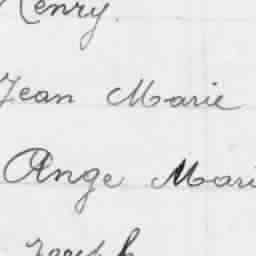 Henry.
Jean Marie
Ange Mari
Joseph